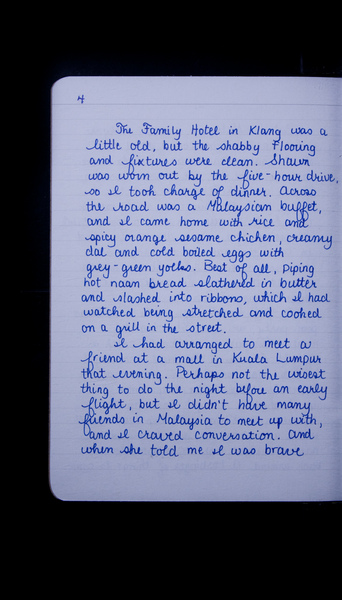 4
The Family Hotel in Klang was a
little old, but the shabby flooring
and fixtures were clean. Shawn
was worn out by the five-hour drive,
so I took charge of dinner. Across
the road was a Malaysian buffet,
and I came home with rice and
spicy orange sesame chicken, creamy
dal and cold boiled eggs with
grey-green yolks. Best of all, piping
hot naan bread slathered in butter
and slashed into ribbons, which I had
watched being stretched and cooked
on a grill in the street.
I had arranged to meet a
friend at a mall in Kuala Lumpur
that evening. Perhaps not the wisest
thing to do the night before an early
flight, but I didn't have many
friends in Malaysia to meet up with,
and I craved conversation. And
when she told me I was brave